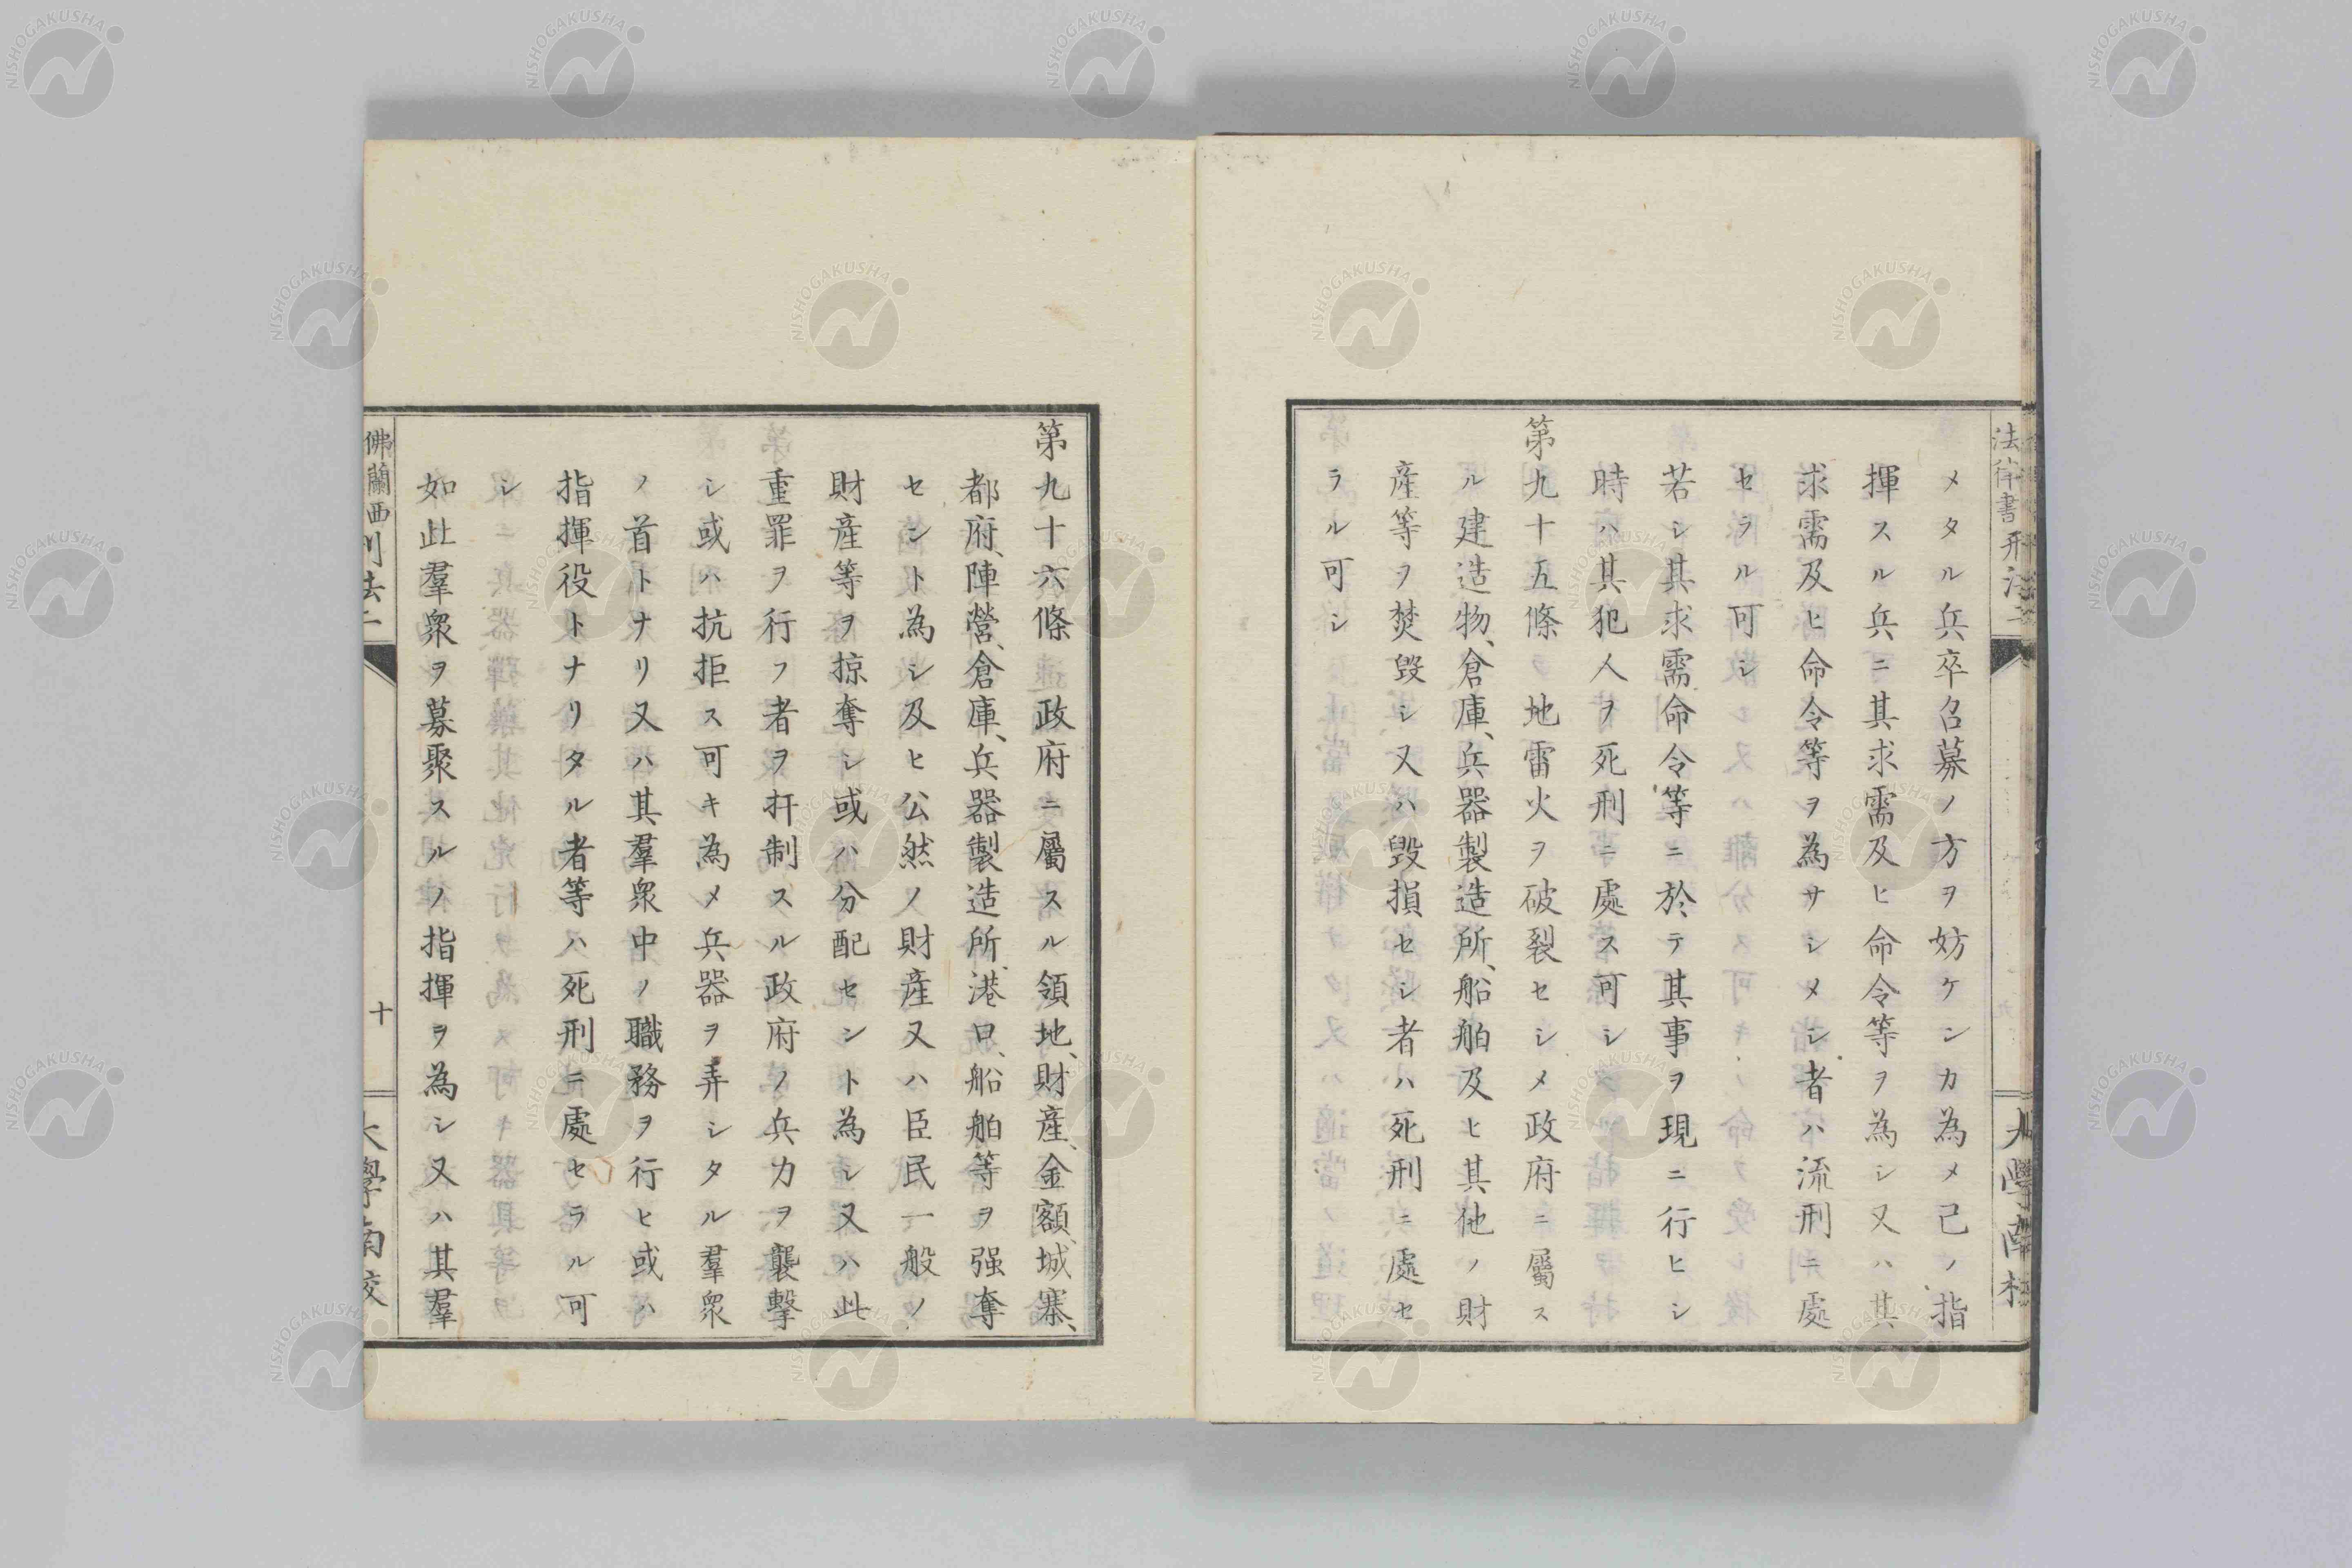 メタル兵卒召募ノ方ヲ妨ケンカ為メ己ノ指
揮スル兵ニ其求需及ヒ命令等ヲ為シ又ハ其
求需及ヒ命令等ヲ為サシメシ者ハ流刑ニ處
セラル可シ
若シ其求需命令等ニ於テ其事ヲ現ニ行ヒシ
時ハ其犯人ヲ死刑ニ處ス可シ
第九十五條 地雷火ヲ破裂セシメ政府ニ屬ス
ル建造物、倉庫、兵器製造所、船舶及ヒ其他ノ財
産等ヲ焚毀シ又ハ毀損セシ者ハ死刑ニ處セ
ラル可シ
第九十六條 政府ニ屬スル領地、財産、金額、城寨、
都府、陣營、倉庫、兵器製造所、港口、船舶等ヲ强奪
セント為シ及ヒ公然ノ財産又ハ臣民一般ノ
財産等ヲ掠奪シ或ハ分配セント為シ又ハ此
重罪ヲ行フ者ヲ扞制スル政府ノ兵力ヲ襲擊
シ或ハ抗拒ス可キ為メ兵器ヲ弄シタル羣衆
ノ首トナリ又ハ其羣衆中ノ職務ヲ行ヒ或ハ
指揮役トナリタル者等ハ死刑ニ處セラル可
シ
如此羣衆ヲ募聚スルノ指揮ヲ為シ又ハ其羣
佛蘭西刑法二
十
大學南校
NISHOGAKUSHA